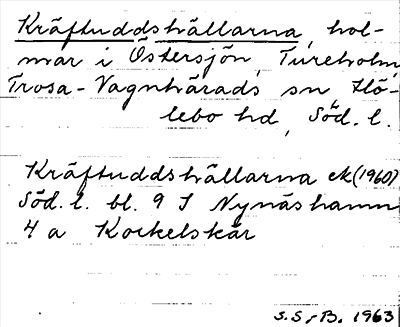 Kräftuddshällarna, hol-
mar i Östersjön, Tureholm,
Trosa-Vagnhärads sn Hö-
lebo hd, Söd. l.
Kräftuddshällarna ek (1960)
Söd. l. bl. 9 I Nynäshamn
4 a Kockelskär
S.S.-B. 1963